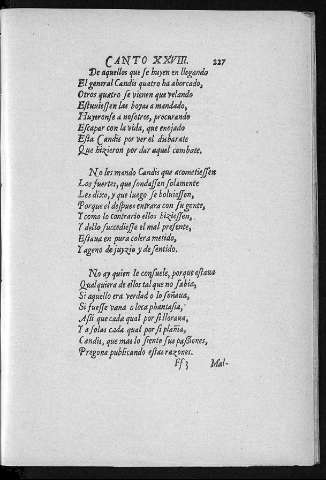 CANTO XXVIII. 227
De aquellos que se huyen en llegando
El general Candis quatro ha ahorcado,
Otros quatro se vienen que velando
Estuuiessen las boyas a mandado,
Huyeronse a nosotros, procurando
Escapar con la vida, que enojado
Esta Candis por ver el disbarate
Que hizieron por dar aquel combate.
No les mando Candis que acometiessen
Los fuertes, que sondassen solamente
Les dixo, y que luego se boluiessen,
Porque el despues entrara con su gente,
Y como lo contrario ellos hiziessen,
Y dello succediesse el mal presente,
Estaua en pura colera metido,
Y ageno de juyzio y de sentido.
No ay quien le consuele, porque estaua
Qualquiera de ellos tal que no sabia,
Si aquello era verdad o lo soñaua,
Si fuesse vana o loca phantasia,
Assi que cada qual por si lloraua,
Y a solas cada qual por si plañia,
Candis, que mas lo siente sus passiones,
Pregona publicando estas razones.
Ff3 Mal-